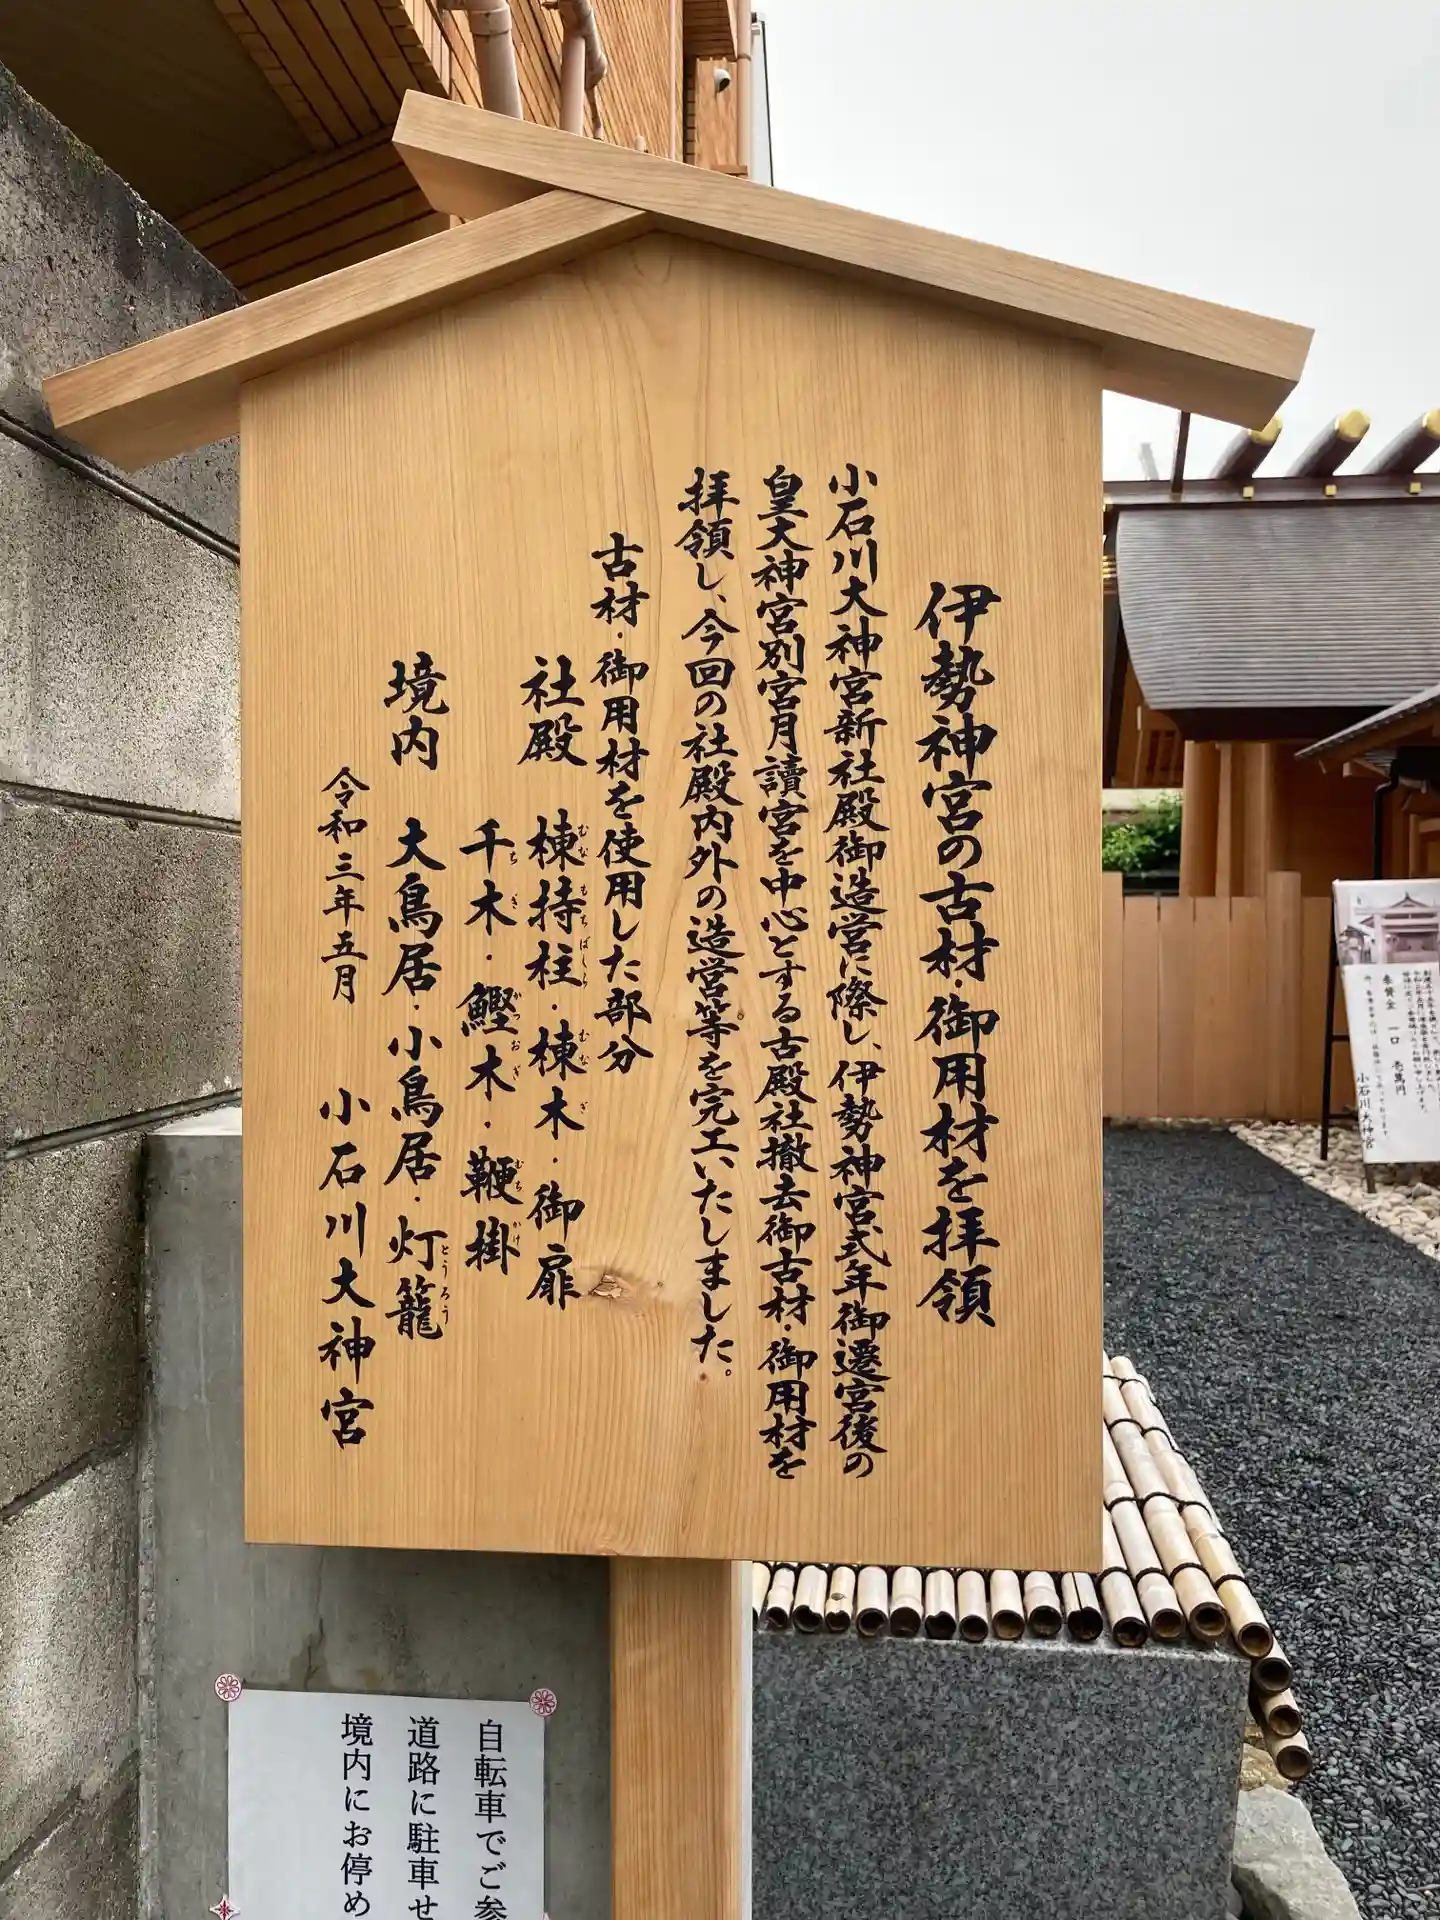 伊勢神宮の古材・御用材を拝領
小石川大神宮新社殿御造営に際し、伊勢神宮式年御遷宮後の
皇大神宮別宮月讀宮を中心とする古殿社撤去御古材・御用材を
拝領し、今回の社殿内外の造営等を完工いたしました。
古材・御用材を使用した部分
社殿 棟持柱・棟木・御扉
むなもちばしら むなぎ
千木・鰹木・鞭掛
ちぎ かつおぎ むちかけ
境内 大鳥居・小鳥居・灯籠
とうろう
令和三年五月 小石川大神宮
奉賛金 一口 壱萬円
小石川大神宮
自転車でご参
道路に駐車せ
境内にお停め